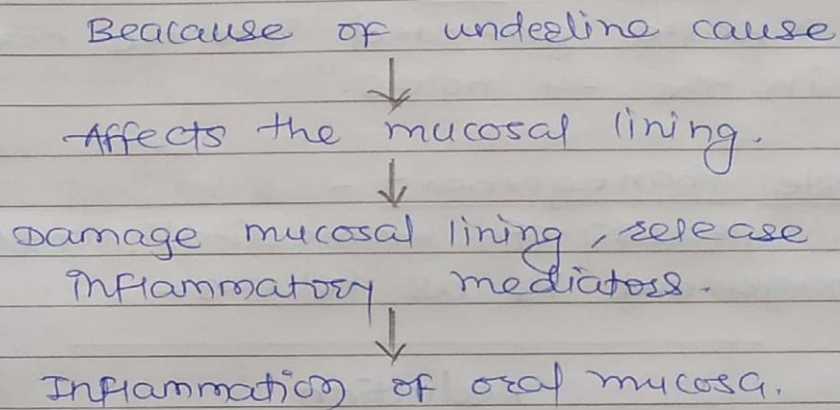 Beacause of underline cause
↓
Affects the mucosal lining.
↓
Damage mucosal lining, release
inflammatory mediators.
↓
Inflammation of oral mucosa.